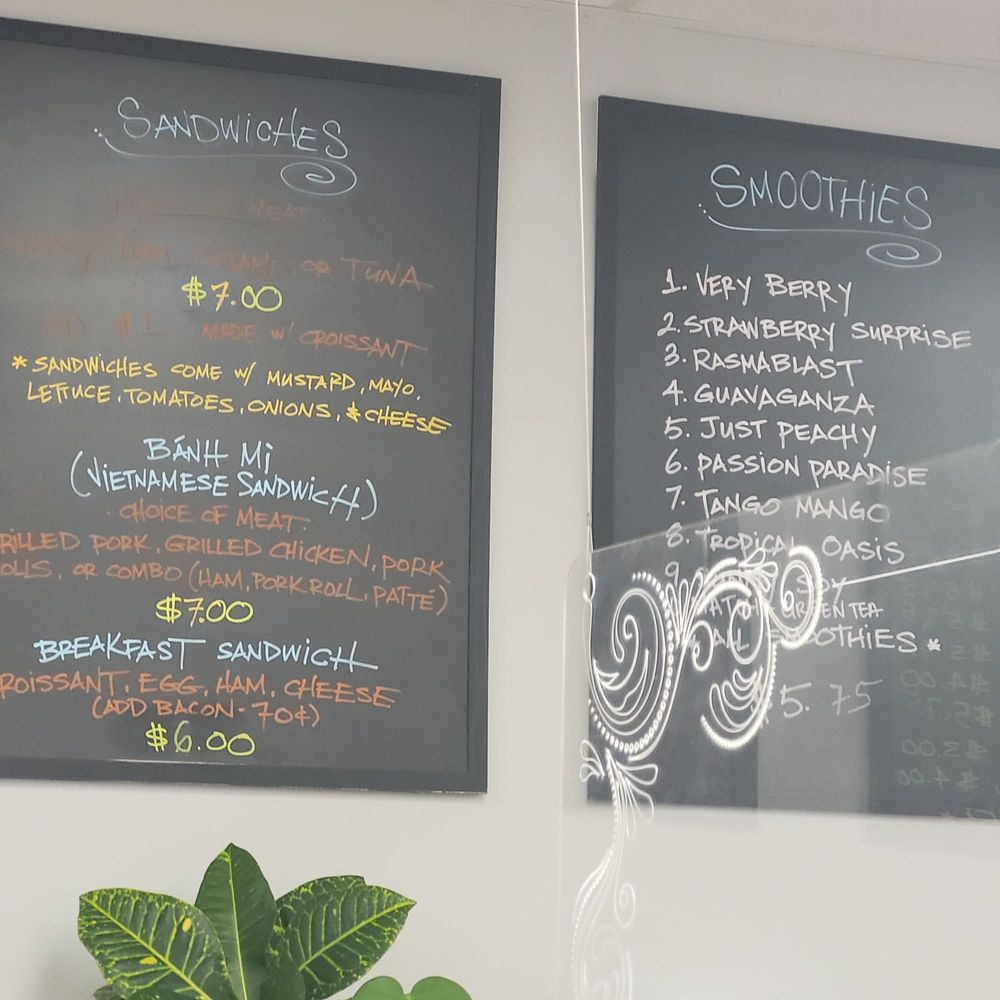 SANDWICHES
MEAT
SALAMI, OR TUNA
$7.00
MADE W/ CROISSANT
* SANDWICHES COME W/ MUSTARD, MAYO,
LETTUCE, TOMATOES, ONIONS, & CHEESE
BÁNH MÌ
(VIETNAMESE SANDWICH)
CHOICE OF MEAT:
RILLED PORK, GRILLED CHICKEN, PORK
OLLS, OR COMBO (HAM, PORK ROLL, PATTÉ)
$7.00
BREAKFAST SANDWICH
ROISSANT, EGG, HAM, CHEESE
(ADD BACON - 70¢)
$6.00
SMOOTHIES
1. VERY BERRY
2. STRAWBERRY SURPRISE
3. RASMABLAST
4. GUAVAGANZA
5. JUST PEACHY
6. PASSION PARADISE
7. TANGO MANGO
8. TROPICAL OASIS
9. SOY
GREEN TEA
ALL SMOOTHIES *
$5.75